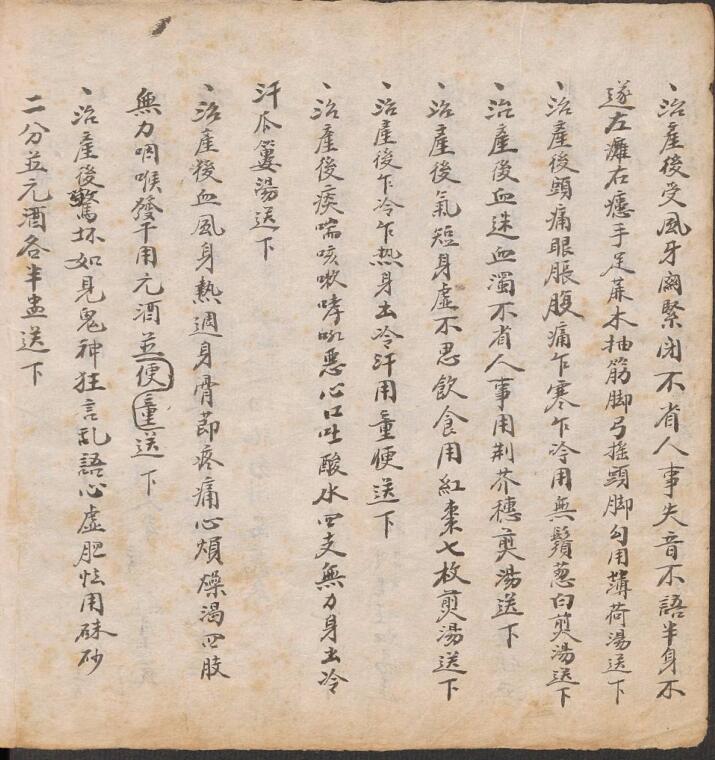 、治產後受風牙関緊闭不省人事失音不語半身不
遂左癱右瘓手足蔴木抽筋脚弓摇頭脚勾用薄荷湯送下
、治產後頭痛眼脹腹痛乍寒乍冷用無鬚葱白煎湯送下
、治產後血迷血濁不省人事用荆芥穗煎湯送下
、治產後氣短身虛不思飲食用紅棗七枚煎湯送下
、治產後乍冷乍热身出冷汗用童便送下
、治產後痰喘咳嗽哮吼惡心口吐酸水四支無力身出冷
汗瓜蔞湯送下
、治產後血風身熱週身骨莭疼痛心煩燥渴四肢
無力咽喉發干用元酒並便童送下
、治產後驚坏如見鬼神狂言乱語心虛胆怯用硃砂
二分並元酒各半盅送下